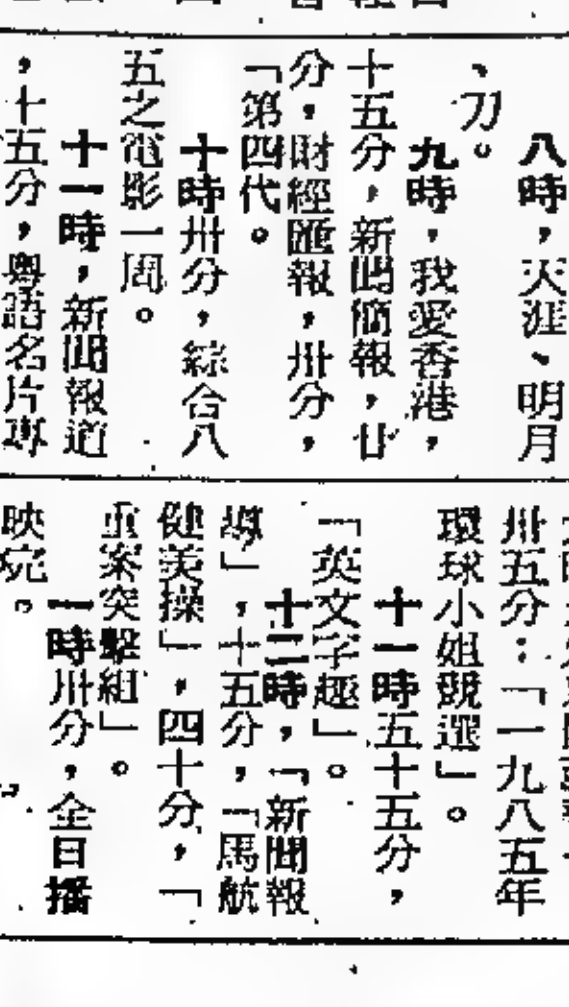 八時，天涯、明月
、刀。
九時，我愛香港，
十五分，新聞簡報，廿
分，財經匯報，卅分，
「第四代。
十時卅分，綜合八
五之電影一周。
十一時，新聞報道
，十五分，粵語名片專
卅五分：「一九八五年
環球小姐競選」。
十一時五十五分，
「英文字趣」。
十二時，「新聞報
導」，十五分，「馬航
健美操」，四十分，「
重案突擊組」。
一時卅分，全日播
映完。